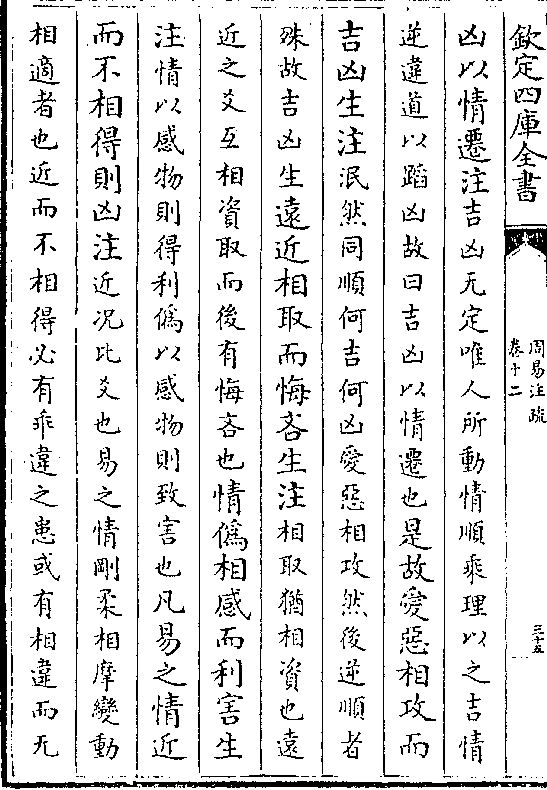 欽定四庫全書
周易注疏
卷十二
三十五
凶以情遷注吉凶无定唯人所動情順乘理以之吉情
逆違道以蹈凶故曰吉凶以情遷也是故愛惡相攻而
吉凶生注泯然同順何吉何凶愛惡相攻然後逆順者
殊故吉凶生遠近相取而悔吝生注相取猶相資也遠
近之爻互相資取而後有悔吝也情偽相感而利害生
注情以感物則得利偽以感物則致害也凡易之情近
而不相得則凶注近况比爻也易之情剛柔相摩變動
相適者也近而不相得必有乖違之患或有相違而无